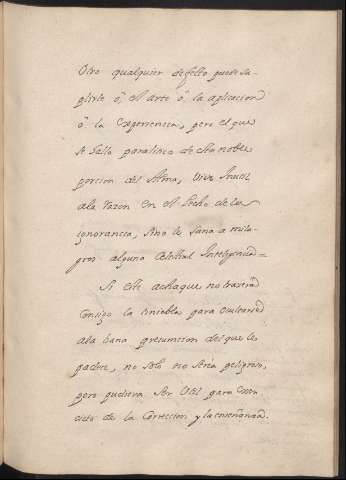 Otro qualquier defecto puede su-
plirle ô, el arte ô, la aplicacion
ô la Experiencia, pero el que
se halla paralitico de esta noble
porcion del Alma, vive Inutil
ala razon en el lecho de la
ignorancia, sino le sana a mila-
gros alguna Celestial Inteligencia=
Si este achaque no traxera
Consigo la tiniebla para ocultarse
ala bana presumcion del que le
padece, no solo no sería peligroso,
pero pudiera ser Util para
de la Correccion y la enseñanza.